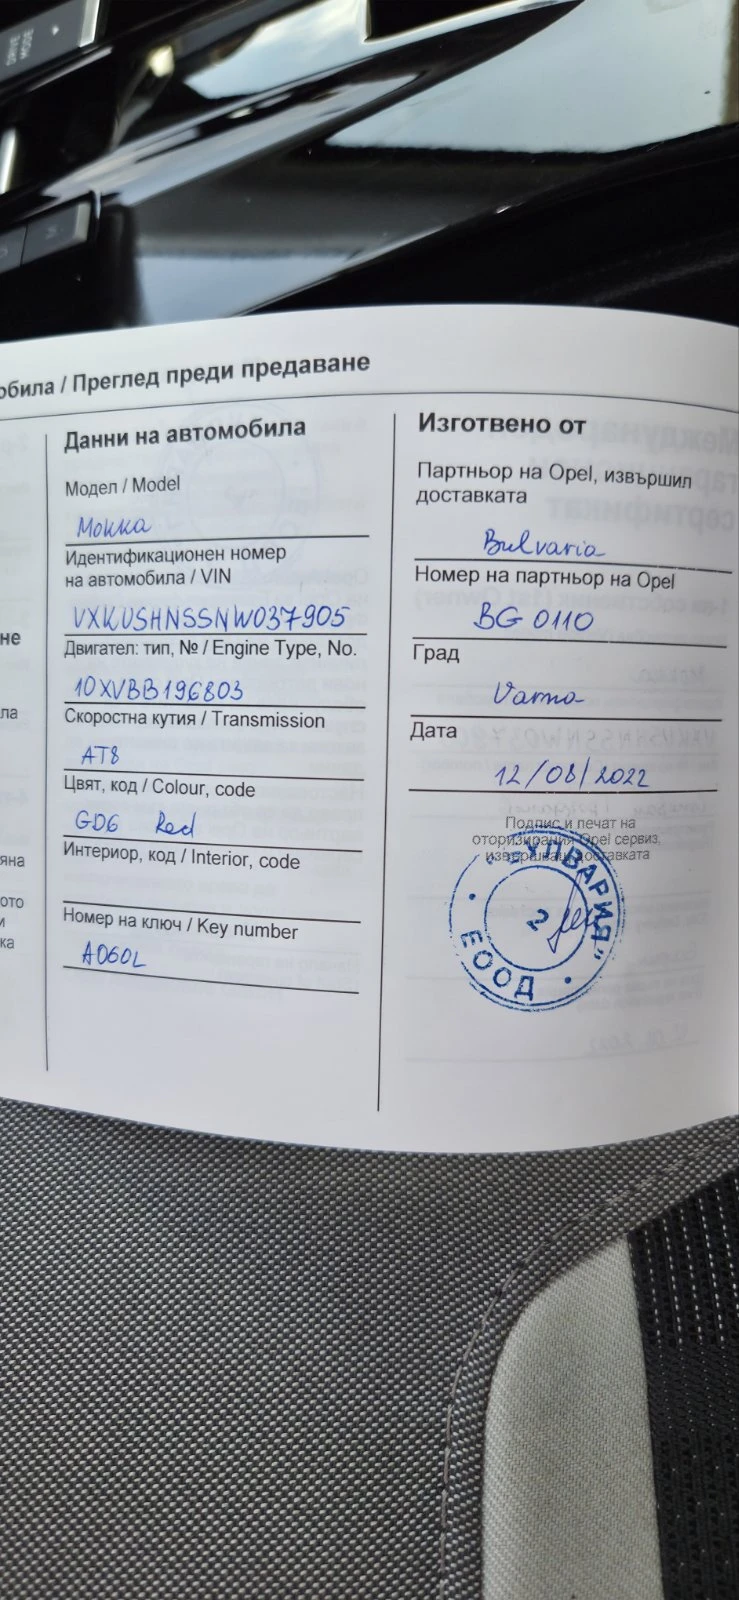 DRIVE
MODE
обила / Преглед преди предаване
Данни на автомобила
Модел / Model
Мокка
Идентификационен номер
на автомобила / VIN
VXKUSHNSSNW037905
Двигател: тип, № / Engine Type, No.
10XVBB196803
Скоростна кутия / Transmission
AT8
Цвят, код / Colour, code
GD6 Red
Интериор, код / Interior, code
Номер на ключ / Key number
A060L
Изготвено от
Партньор на Opel, извършил
доставката
Bulvaria
Номер на партньор на Opel
BG 0110
Град
Varna
Дата
12/08/2022
Подпис и печат на
оторизирания Opel сервиз,
извършващ доставката
"БУЛВАРИЯ"
2
ЕООД
не
ла
яна
ото
и
ка